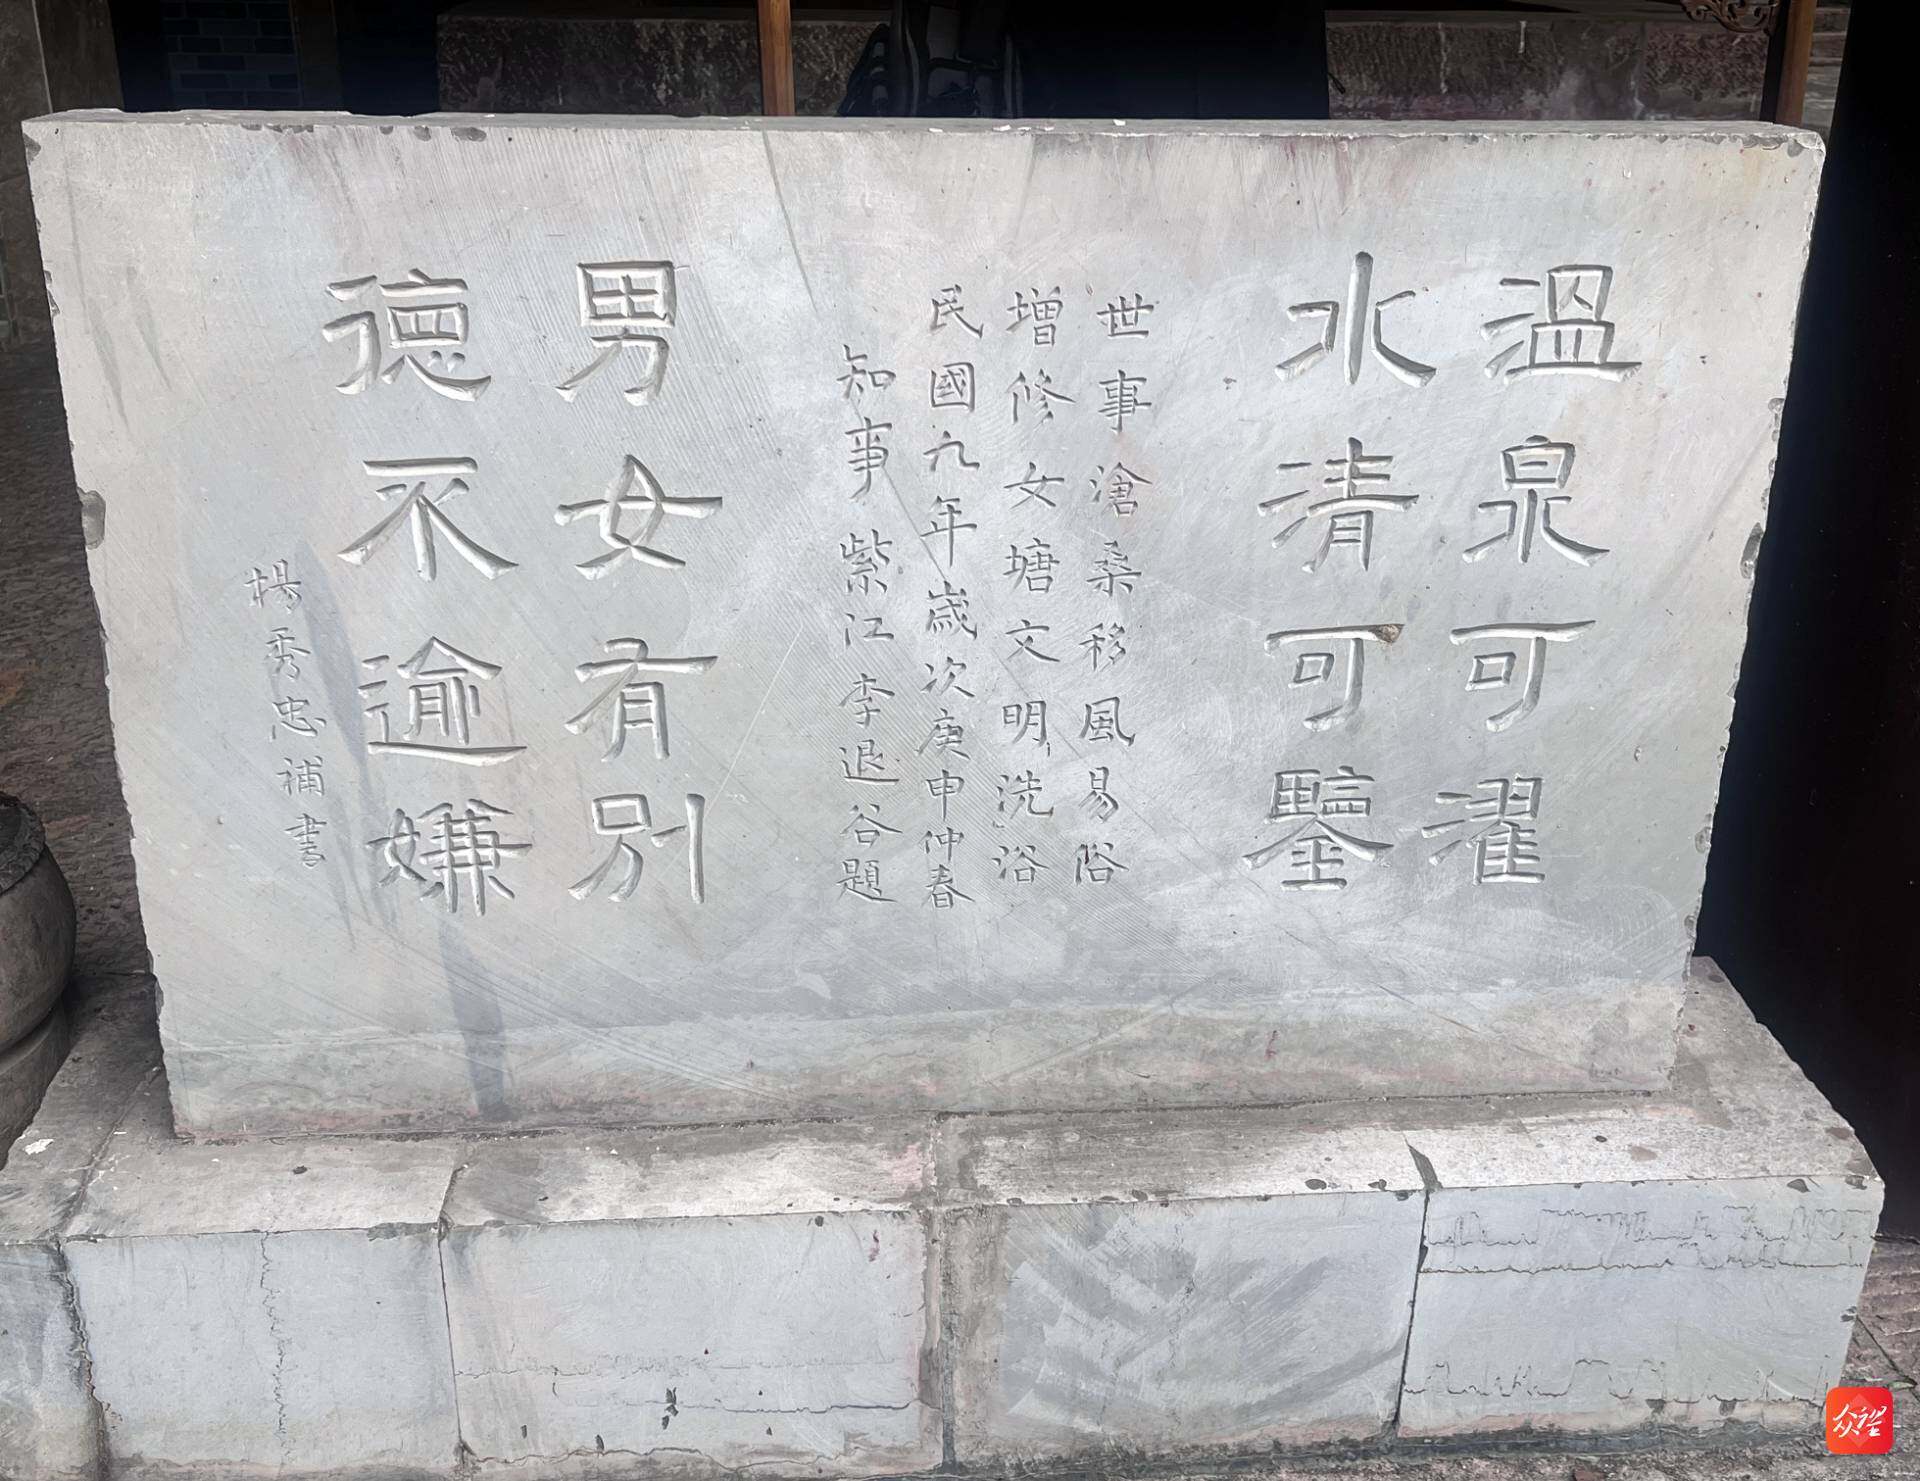 溫泉可濯
水清可鑒
世事滄桑移風易俗
增修女塘文明洗浴
民國九年歲次庚申仲春
知事紫江李退谷題
男女有别
德不逾嫌
楊秀忠補書
众望